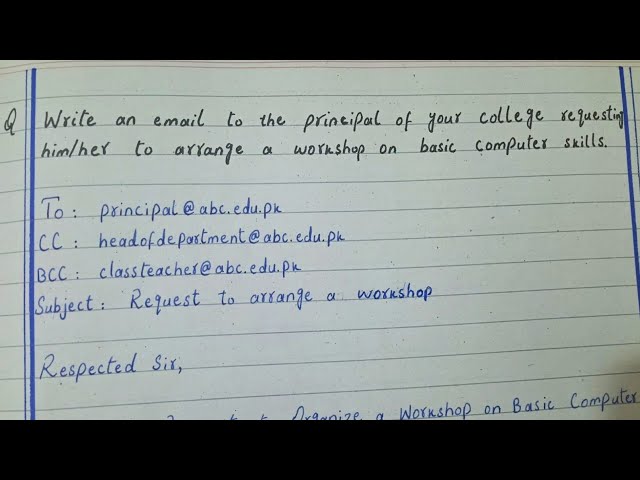 Q Write an email to the principal of your college requesting
him/her to arrange a workshop on basic computer skills.
To: principal@abc.edu.pk
CC: headofdepartment@abc.edu.pk
BCC: classteacher@abc.edu.pk
Subject: Request to arrange a workshop
Respected Sir,
Organize a Workshop on Basic Computer